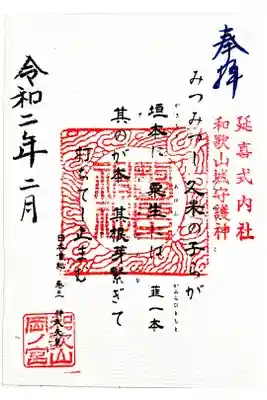 奉拝
延喜式内社
和歌山城守護神
みつみつし 久米の子らが
垣本に 粟生には 韮一本
かみらひともと
其のが本 其根芽繋ぎて
打ちてし止まむ
日本書紀 巻三
神武天皇
和歌山
岡ノ宮
令和二年 二月